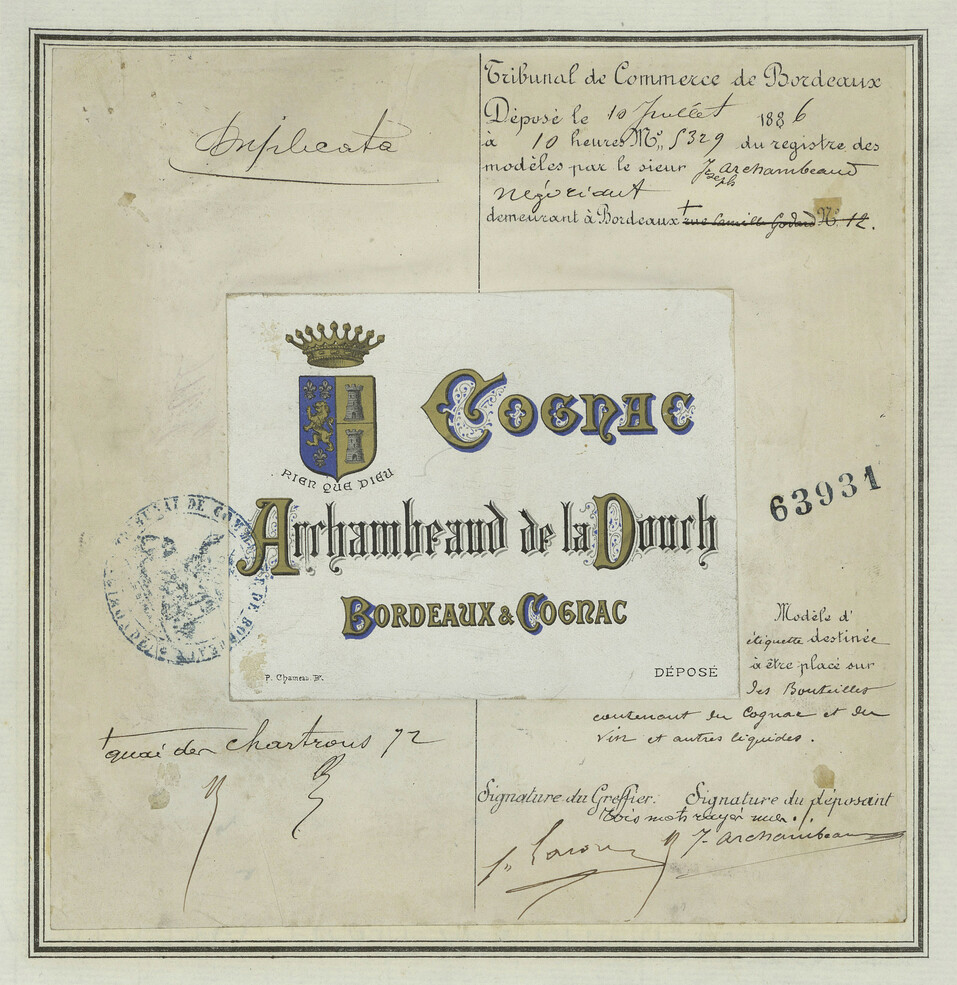 Duplicata
Tribunal de Commerce de Bordeaux
Déposé le 10 Juillet 1886
à 10 heures No. 5329 du registre des
modèles par le sieur Joseph Archambeaud
négociant
demeurant à Bordeaux + rue Camille Godard No. 12.
COGNAC
RIEN QUE DIEU
Archambeaud de la Douch
BORDEAUX & COGNAC
P. Chameau Br.
DÉPOSÉ
63931
TRIBUNAL DE COMMERCE DE BORDEAUX
Modèle d'
étiquette destinée
à être placé sur
des Bouteilles
contenant du Cognac et du
Vin et autres liquides.
+ quai des Chartrons 72
Signature du Greffier. Signature du déposant
trois mots rayés nuls.
J. Archambeaud